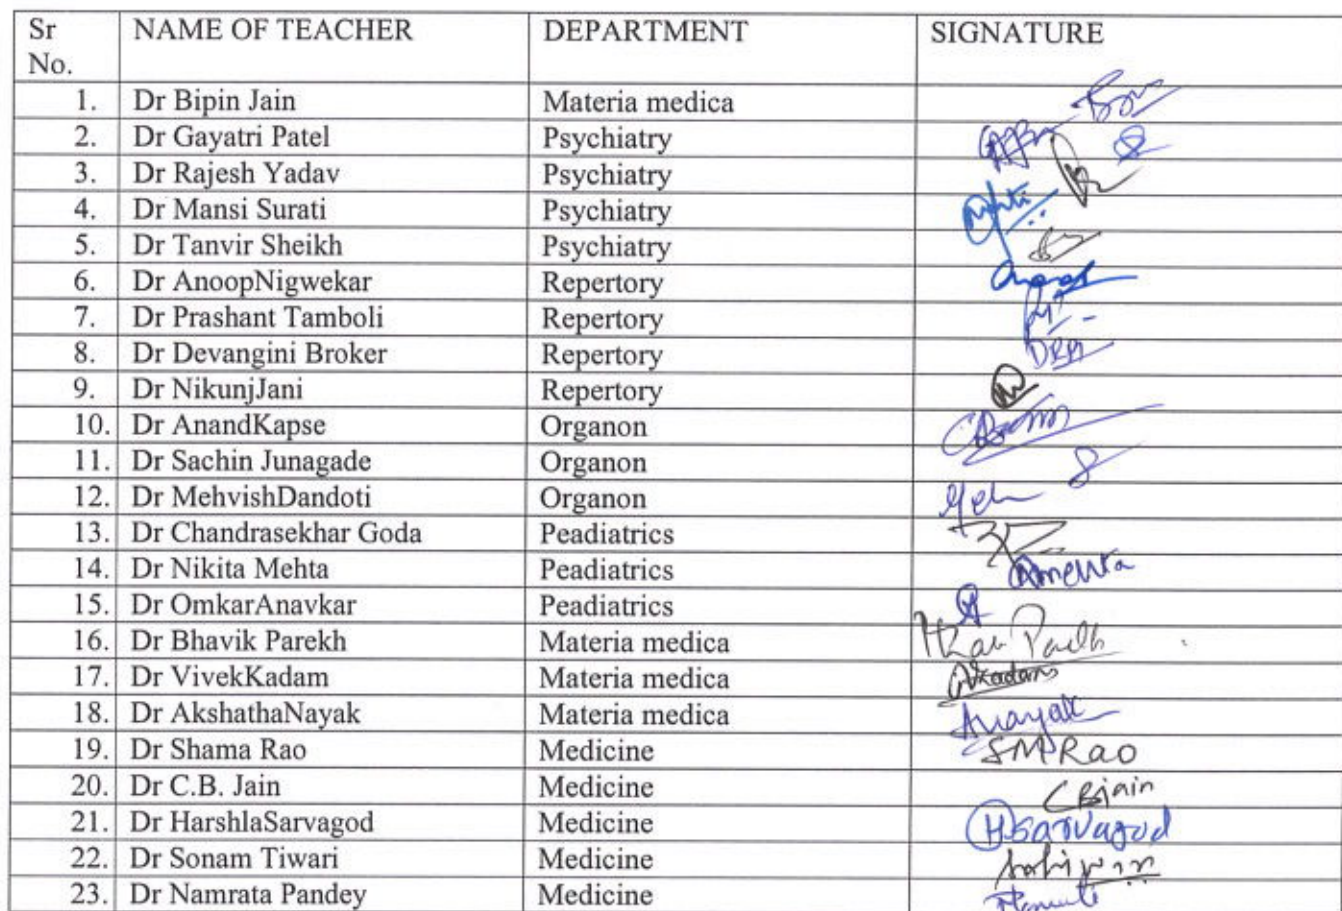 Sr No. NAME OF TEACHER DEPARTMENT SIGNATURE
1. Dr Bipin Jain Materia medica
2. Dr Gayatri Patel Psychiatry
3. Dr Rajesh Yadav Psychiatry
4. Dr Mansi Surati Psychiatry
5. Dr Tanvir Sheikh Psychiatry
6. Dr AnoopNigwekar Repertory
7. Dr Prashant Tamboli Repertory
8. Dr Devangini Broker Repertory
9. Dr NikunjJani Repertory
10. Dr AnandKapse Organon
11. Dr Sachin Junagade Organon
12. Dr MehvishDandoti Organon
13. Dr Chandrasekhar Goda Peadiatrics
14. Dr Nikita Mehta Peadiatrics
15. Dr OmkarAnavkar Peadiatrics
16. Dr Bhavik Parekh Materia medica
17. Dr VivekKadam Materia medica
18. Dr AkshathaNayak Materia medica
19. Dr Shama Rao Medicine SMRao
20. Dr C.B. Jain Medicine CBjain
21. Dr HarshlaSarvagod Medicine HSarvagod
22. Dr Sonam Tiwari Medicine
23. Dr Namrata Pandey Medicine